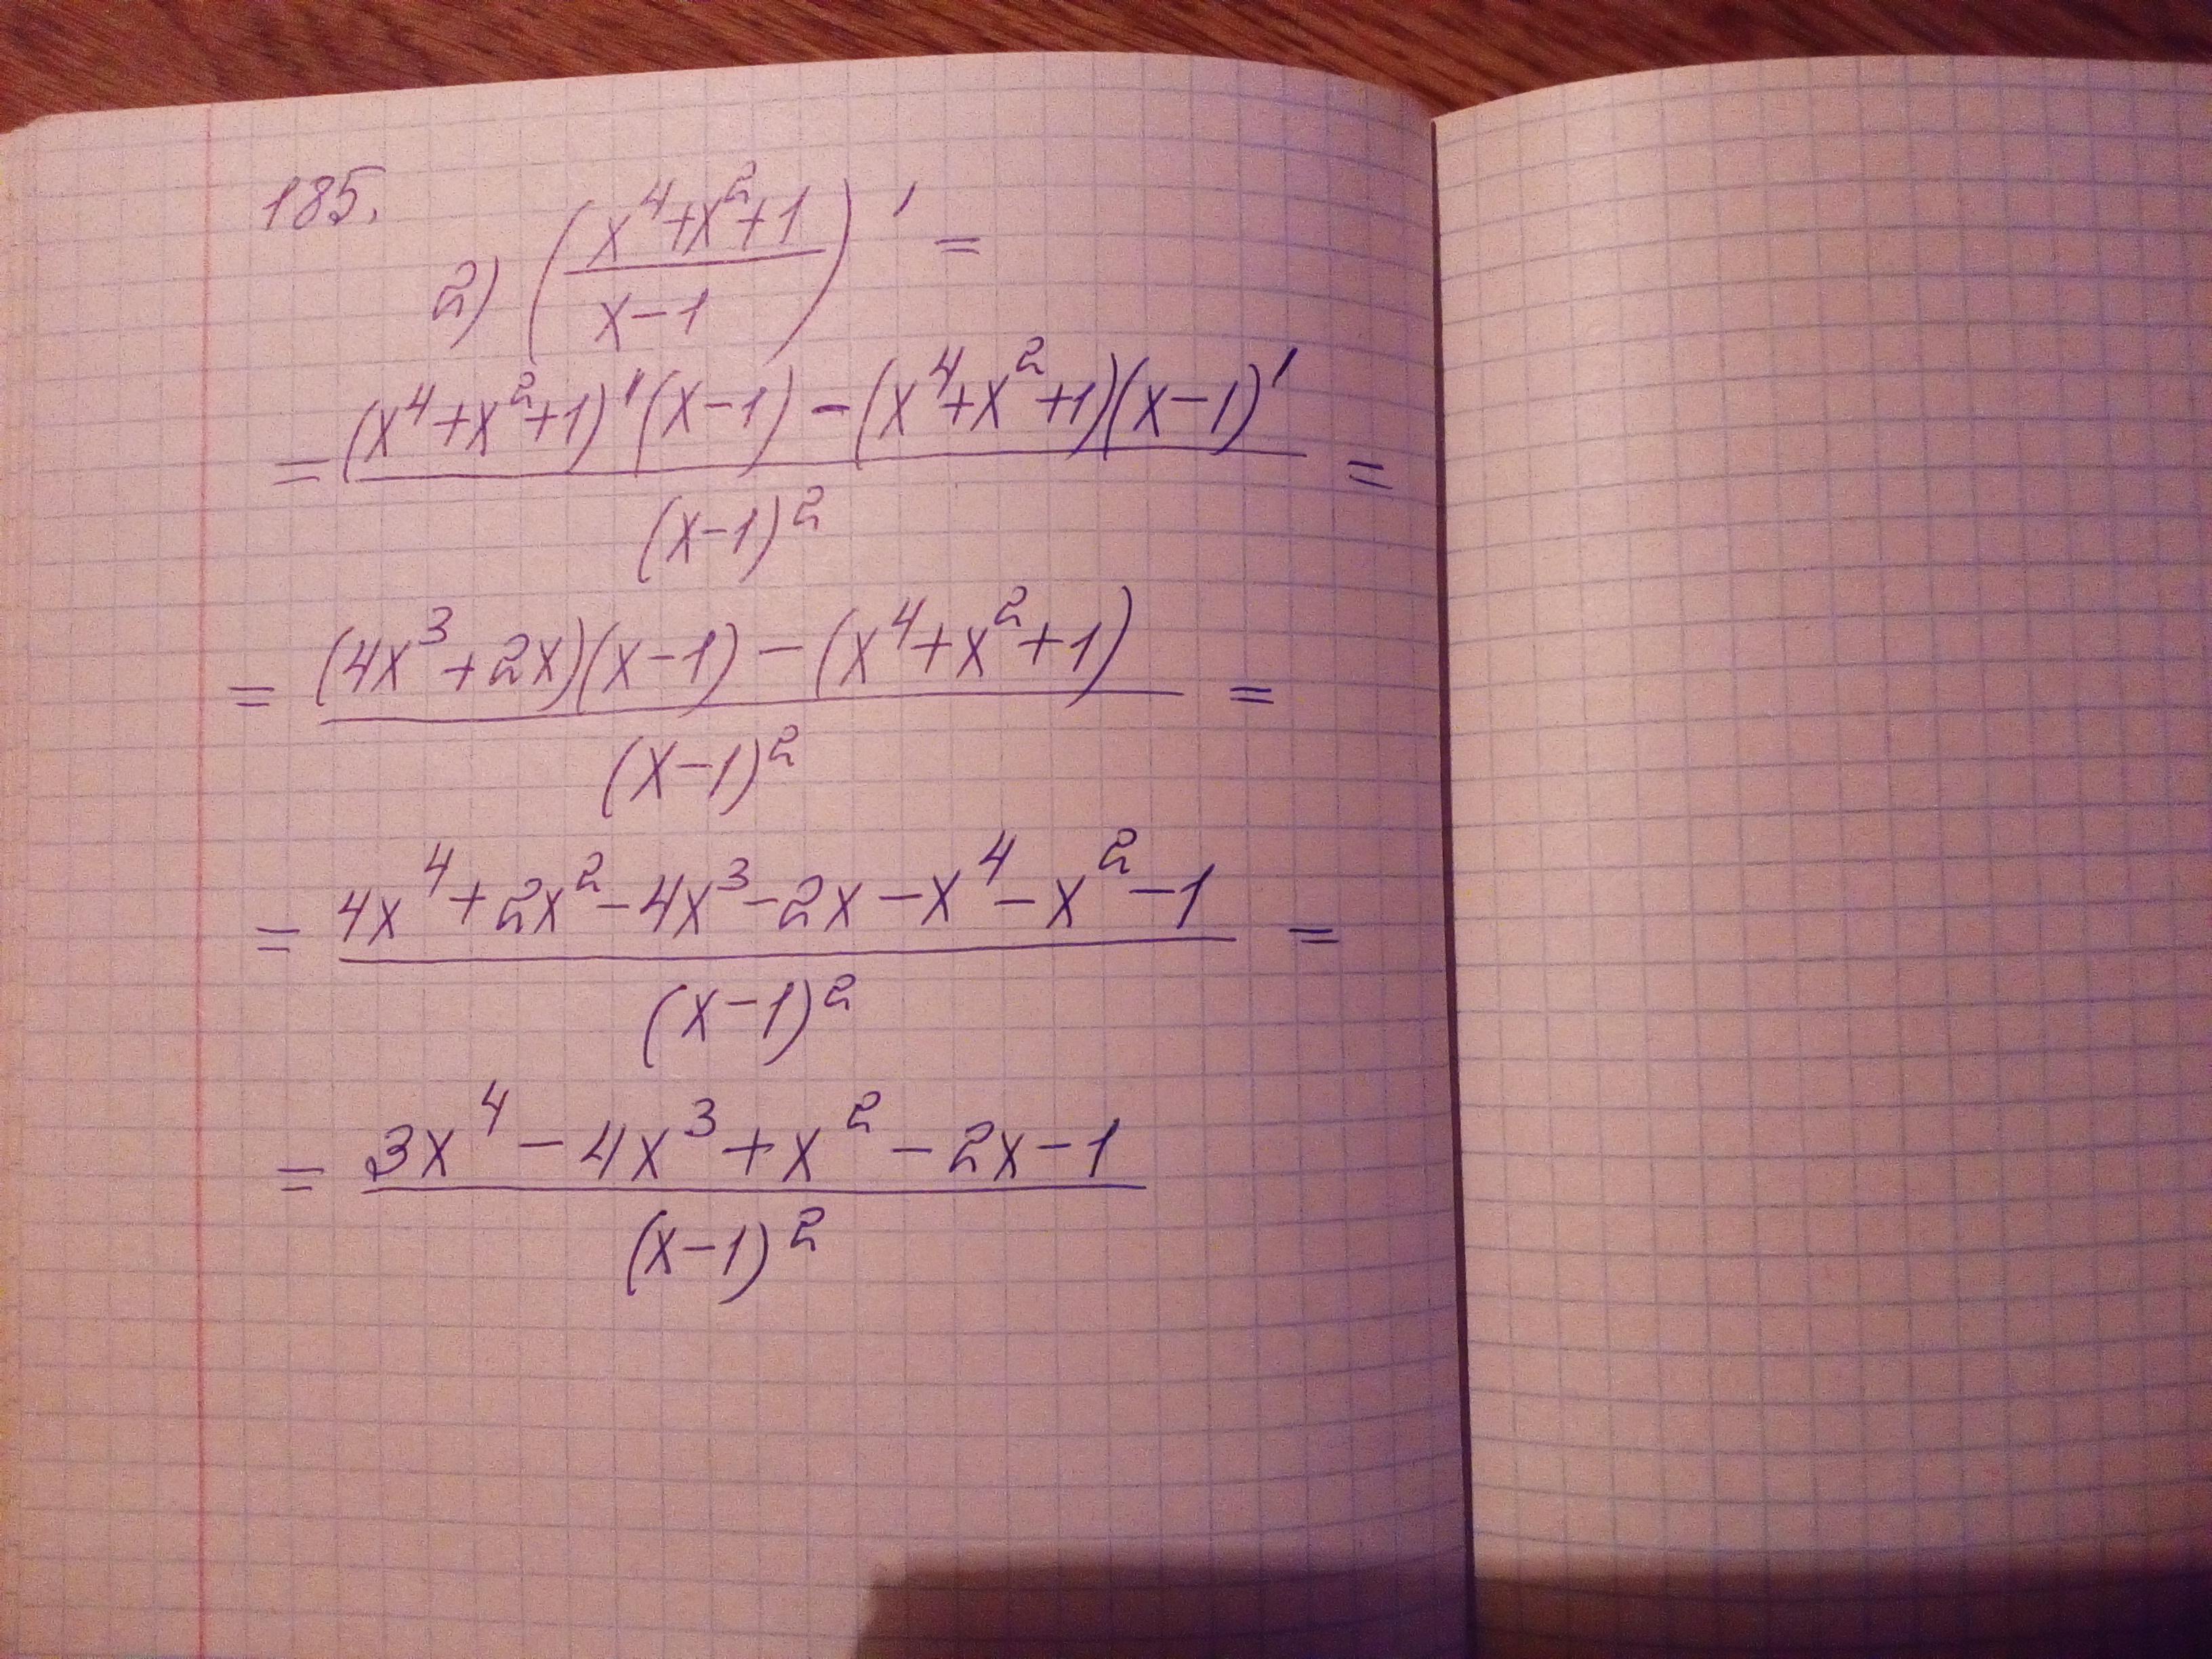 185.
2) ((x⁴+x²+1)/(x-1))' =
= ((x⁴+x²+1)'(x-1) - (x⁴+x²+1)(x-1)')/(x-1)² =
= ((4x³+2x)(x-1) - (x⁴+x²+1))/(x-1)² =
= (4x⁴+2x²-4x³-2x-x⁴-x²-1)/(x-1)² =
= (3x⁴-4x³+x²-2x-1)/(x-1)²